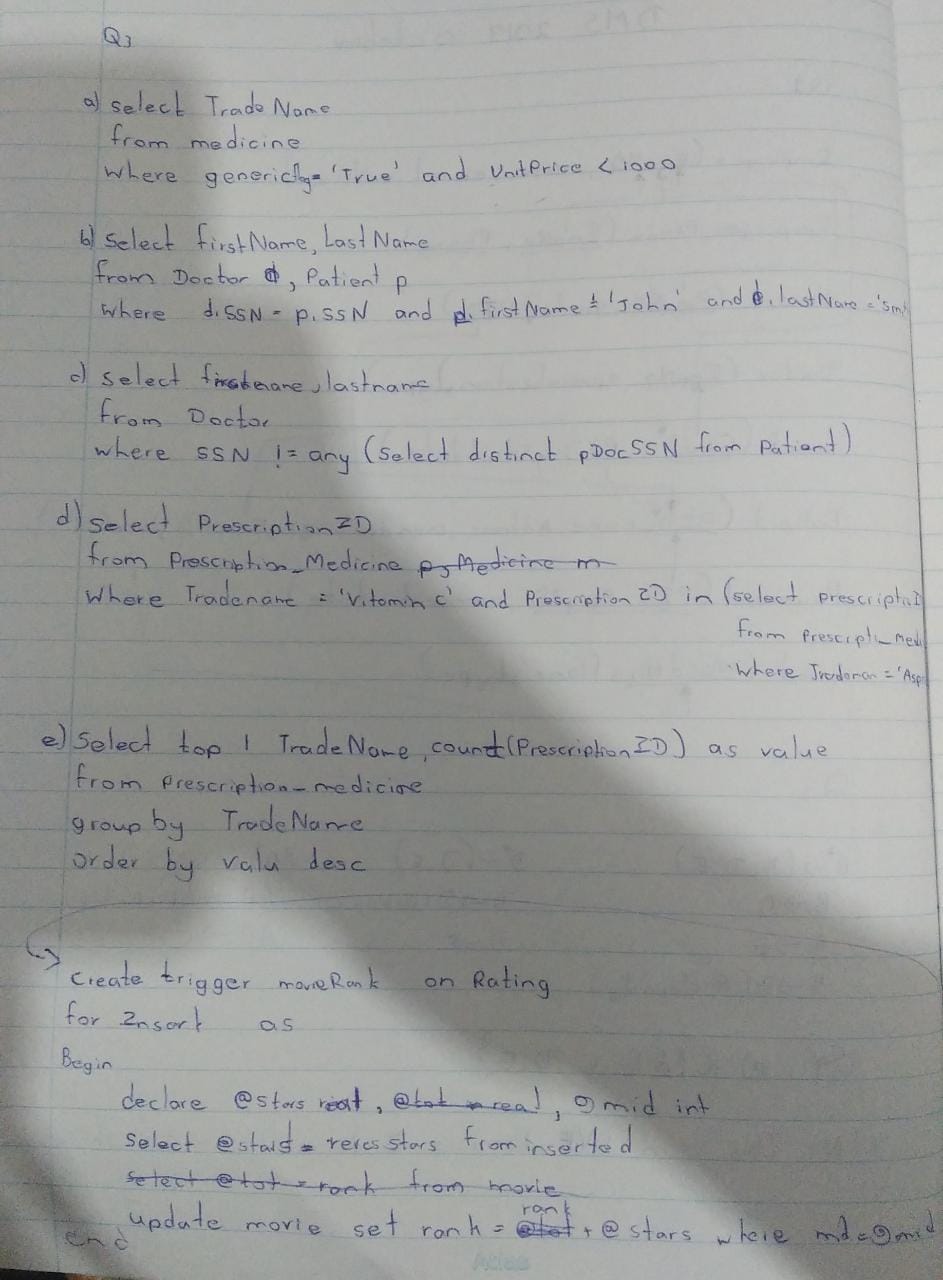 Q3
a) select Trade Name
from medicine
where genericflg= 'True' and UnitPrice < 1000
b) Select firstName, LastName
from Doctor d, Patient p
where d.SSN = p.SSN and d.firstName = 'John' and d.lastName = 'Smi
c) select firstname, lastname
from Doctor
where SSN != any (select distinct pDocSSN from Patient)
d) Select PrescriptionID
from Prescription_Medicine p, Medicine m
Where Tradename = 'Vitamin C' and PrescriptionID in (select prescriptnI
from Prescripti_Medi
where Tradenam = 'Asp
e) Select top 1 TradeName, count(PrescriptionID) as value
from Prescription-medicine
group by TradeName
order by valu desc
create trigger movieRank on Rating
for Insert as
Begin
declare @stars real, @tot real, @mid int
select @stars = stars from inserted
select @tot = rank from movie
rank
update movie set rank = @tot + @stars where mid = @mid
end
Atlas